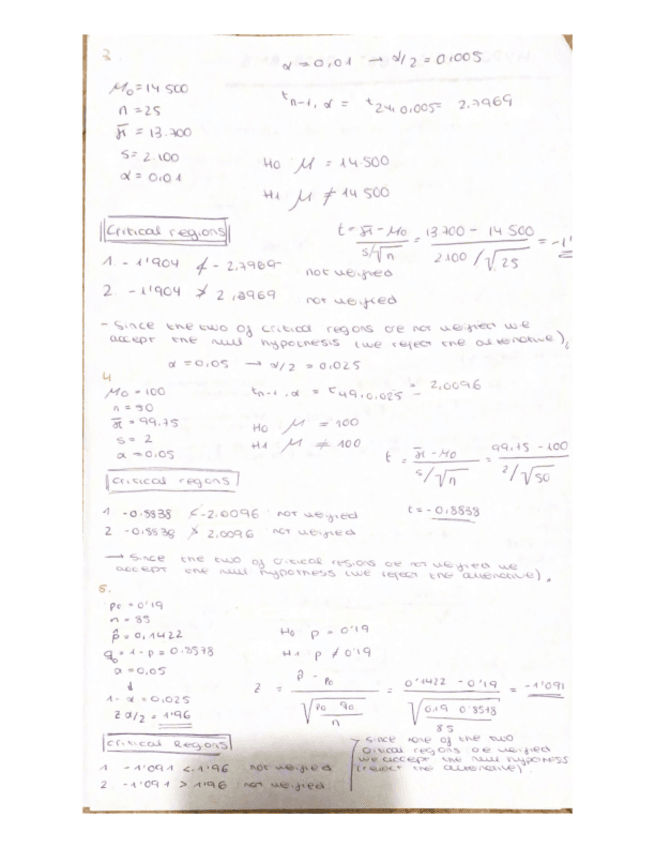 3
α = 0,01 → α/2 = 0,005
μ₀ = 14 500
n = 25
x̄ = 13.700
s = 2.100
α = 0,01
t n-1, α = t 24, 0,005 = 2,7969
H0 μ = 14.500
H1 μ ≠ 14 500
Critical regions
t = x̄ - μ₀ / s/√n = 13 700 - 14 500 / 2.100 / √25 = -1'
1. - 1'904 ≮ - 2,7969 not verified
2. - 1'904 ≯ 2,7969 not verified
- Since the two of critical regions are not verified we
accept the null hypothesis (we reject the alternative),
α = 0,05 → α/2 = 0,025
4
μ₀ = 100
n = 50
x̄ = 99.75
s = 2
α = 0,05
t n-1, α = t 49, 0,025 = 2,0096
H0 μ = 100
H1 μ ≠ 100
t = x̄ - μ₀ / s/√n = 99.75 - 100 / 2/√50
Critical regions
t = - 0,8838
1 -0,8838 ≮ -2,0096 not verified
2 -0,8838 ≯ 2,0096 not verified
→ Since the two of critical regions are not verified we
accept the null hypothesis (we reject the alternative).
5.
p₀ = 0'19
n = 85
p̂ = 0,1422
q₀ = 1 - p = 0,8578
α = 0,05
1 - α = 0,025
Z α/2 = 1'96
H0 p = 0'19
H1 p ≠ 0'19
Z = p̂ - p₀ / √ p₀ q₀ / n = 0'1422 - 0'19 / √ 0,19 0'8578 / 85 = -1'091
Critical Regions
1 -1'091 < 1'96 not verified
2. -1'091 > 1'96 not verified
Since none of the two
critical regions are verified
we accept the null hypothesis
(reject the alternative).